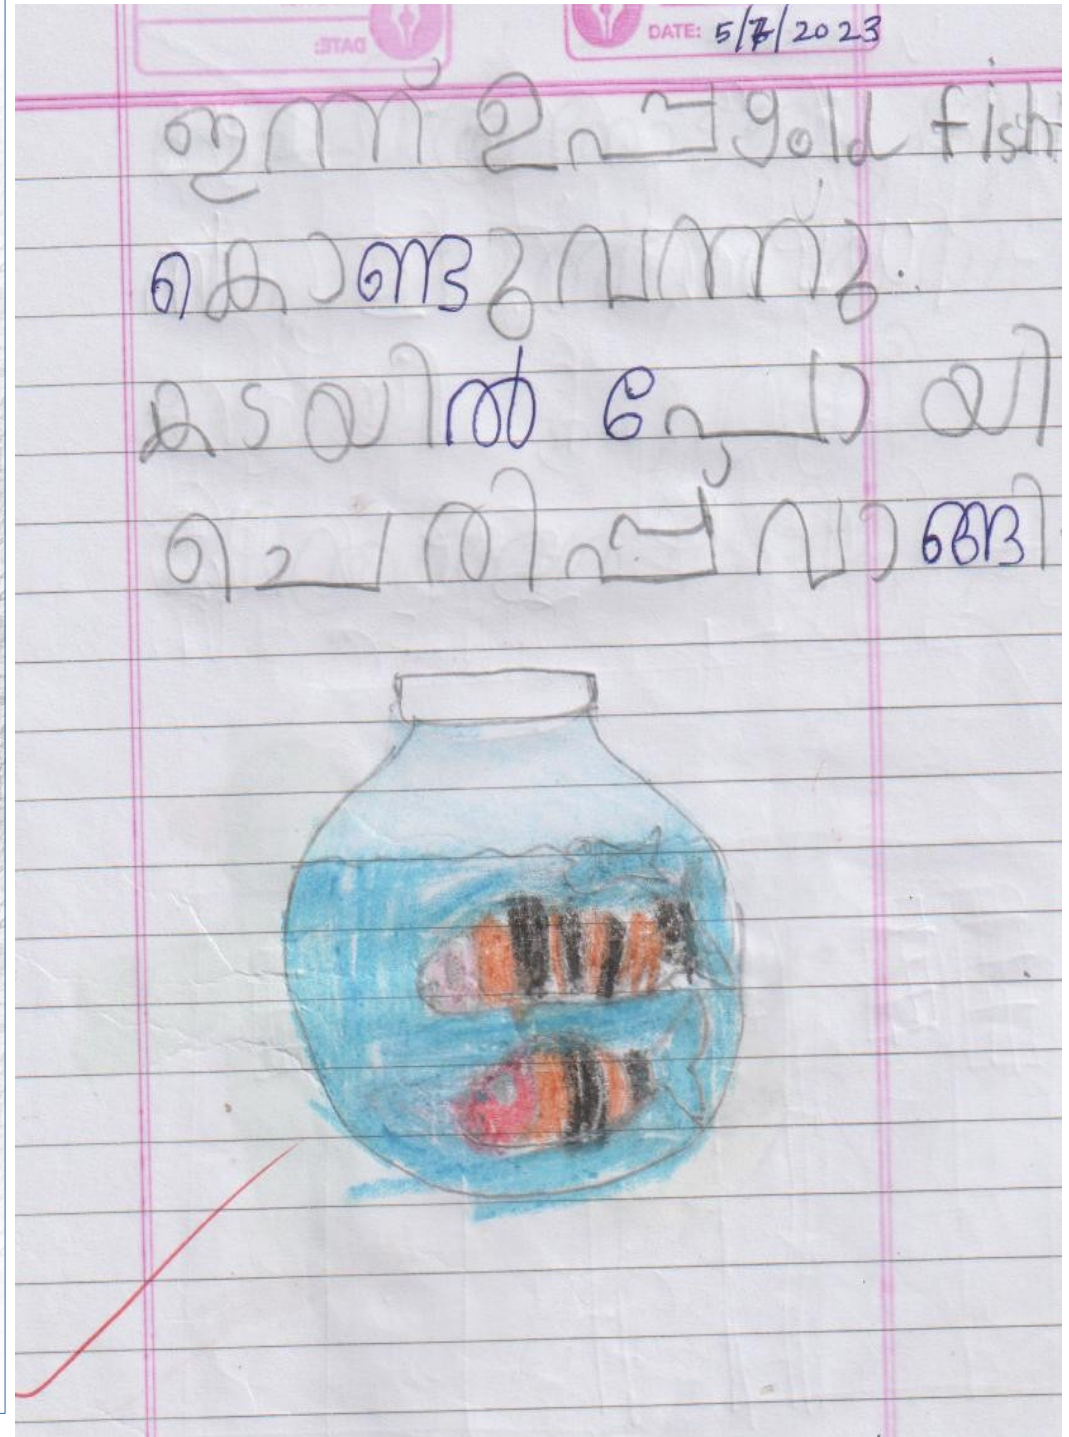 DATE: 5/7/2023
ഇന്ന് ഉപ്പ gold fish
കൊണ്ടുവന്നു.
കടയിൽ പോയി
ചെരിപ്പ് വാങ്ങി